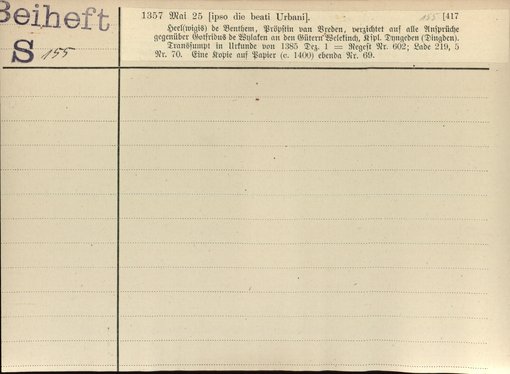 Beiheft
S 155
1357 Mai 25 [ipso die beati Urbani]. 155 [417
Heel(wigis) de Benthem, Pröpstin van Vreden, verzichtet auf alle Ansprüche
gegenüber Gotfridus de Wylaken an den Gütern Welekinch, Kspl. Dyngeden (Dingden).
Transsumpt in Urkunde von 1385 Dez. 1 = Regest Nr. 602; Lade 219, 5
Nr. 70. Eine Kopie auf Papier (c. 1400) ebenda Nr. 69.